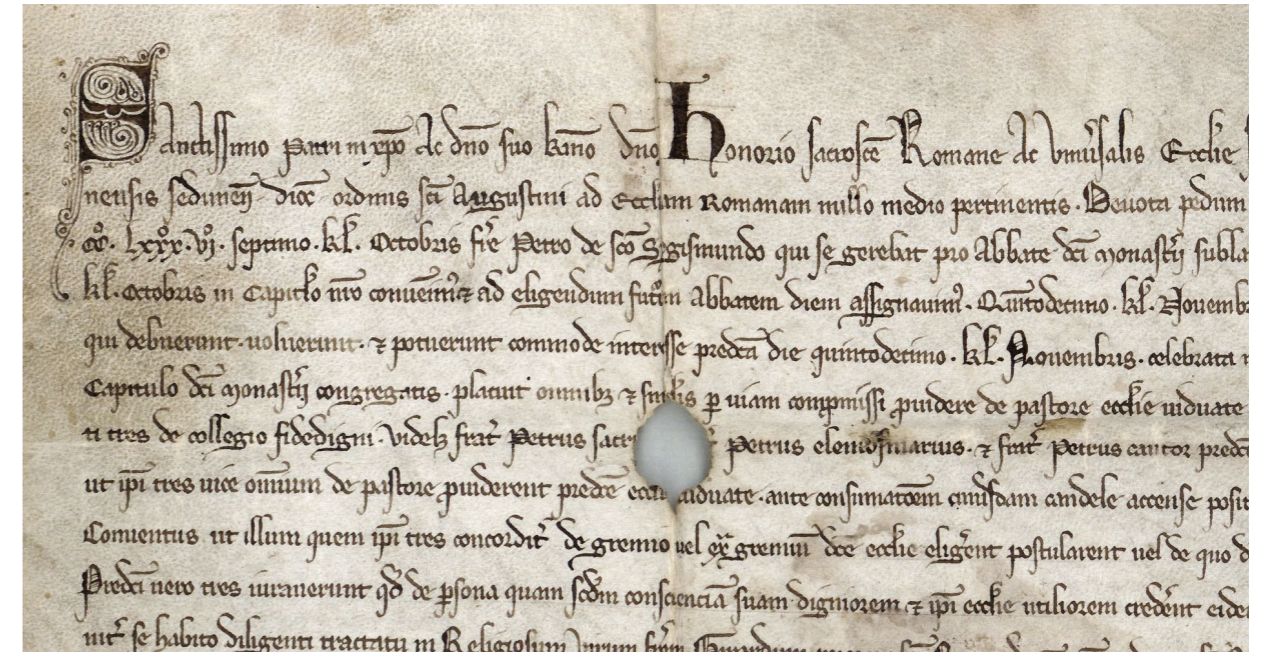 Sanctissimo patri in xpo ac dno suo kmo dno Honorio sacrosce Romane ac uniusalis Ecclie
nensis sedunen dioc ordinis sci Augustini ad Eccliam Romanam nullo medio pertinentis. Deuota pedum
cc. lxxx. vj. septimo. kl. Octobris fre Petro de sco Sigismundo qui se gerebat pro Abbate dci monastij subla
kl. octobris in Capitlo nro conuenim᷒ ⁊ ad eligendum futm Abbatem diem assignauim᷒. Quintodecimo. kl. Nouembr
qui debuerunt. uoluerunt. ⁊ potuerunt commode interesse predca die quintodecimo. kl. Nouembris. celebrata
Capitulo dci monastij congregatis. placuit omnibz ⁊ singlis p uiam compmissi puidere de pastore ecclie uiduate
ti tres de collegio fidedigni. videlz frat Petrus sacri Petrus elemosinarius. ⁊ frat Petrus cantor predc
ut ipi tres uice omnium de pastore puiderent predce eccli uiduate. ante consumatoem cuiusdam candele accense posit
Conuentus ut illum quem ipi tres concordit de gremio uel ex gremiu dce ecclie eligent postularent uel de quo d
Predci uero tres iurauerunt qd de psona quam scdm conscienciā suam digniorem ⁊ ipi ecclie utiliorem credent eide
nit se habito diligenti tractatu in Religiosum uirum frem Girardum